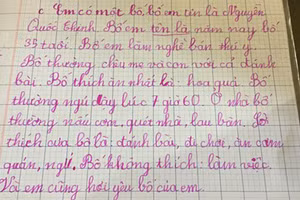 Em có một bố, bố em tên là Nguyễn
Quốc Thịnh. Bố em tên là năm nay bố
35 tuổi. Bố em làm nghề bán thú y.
Bố thường chịu mẹ và con với cả đánh
bài. Bố thích ăn nhất là: hoa quả. Bố
thường ngủ dậy lúc 7 giờ 60. Ở nhà bố
thường nấu cơm, quét nhà, lau bàn. Sở
thích của bố là: đánh bài, đi chơi, ăn cơm
quán, ngủ. Bố không thích: làm việc.
Với em cũng hơi yêu bố của em.